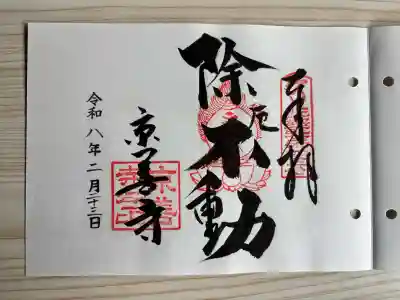 奉拝
除厄不動
京善寺
令和八年二月二十三日